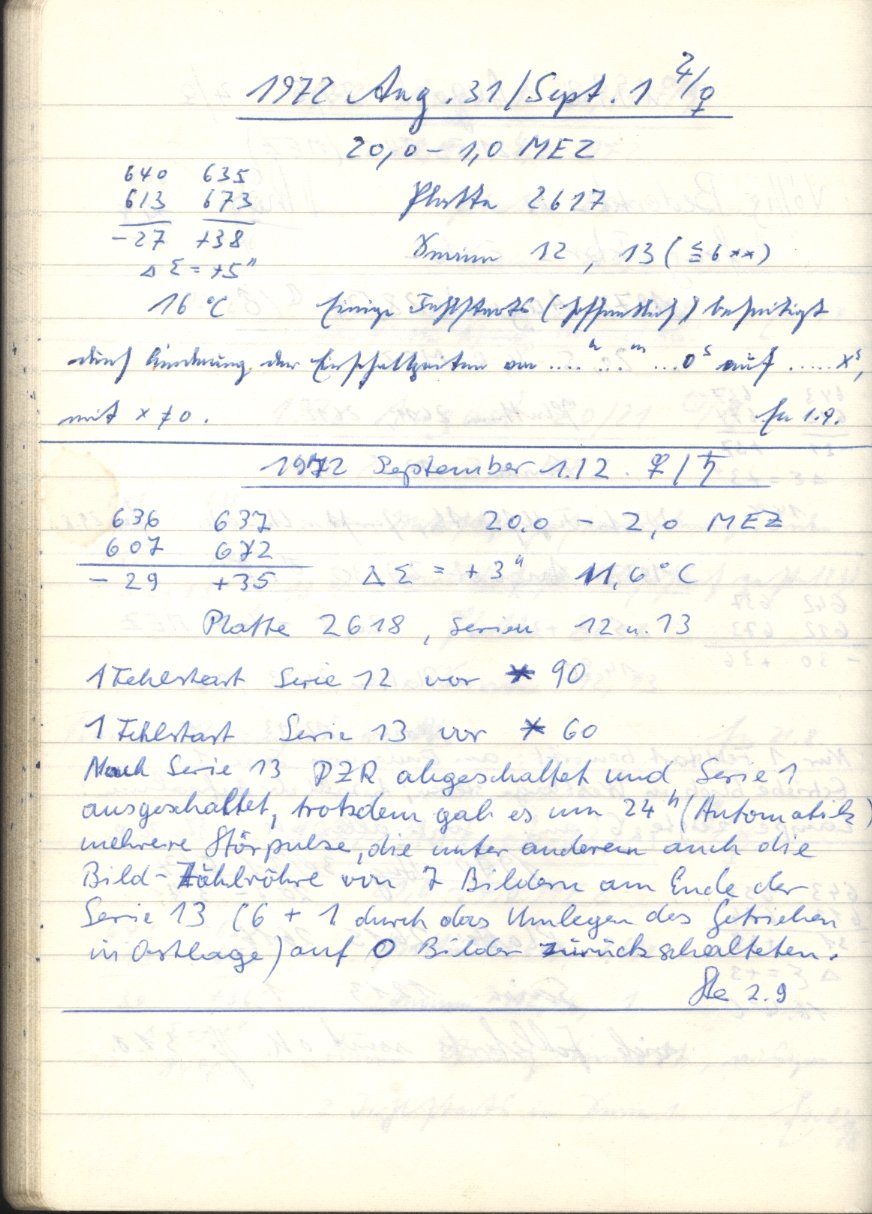 1972 Aug. 31/Sept. 1 ♃/♀
20,0 – 1,0 MEZ
640 635
613 673 Platte 2617
-27 +38 Serien 12, 13 (≦6**)
Δ Σ = +5"
16 °C Einige Fehlstarts (hoffentlich) beseitigt
durch Änderung der Einschaltzeiten von ....ʰ ...ᵐ ...0ˢ auf ..... xˢ,
mit x ≠ 0. 1.9.
1972 September 1.12. ♀/♄
636 637 20,0 – 2,0 MEZ
607 672
-29 +35 Δ Σ = +3" 11,6°C
Platte 2618, Serien 12 u. 13
1 Fehlstart Serie 12 vor * 90
1 Fehlstart Serie 13 vor * 60
Nach Serie 13 PZR abgeschaltet und Serie 1
ausgeschaltet, trotzdem gab es um 24ʰ (Automatik)
mehrere Störpulse, die unter anderem auch die
Bild-Zählröhre von 7 Bildern am Ende der
Serie 13 (6 + 1 durch das Umlegen des Getriebes
in Ostlage) auf 0 Bilder zurückschalteten.
2.9